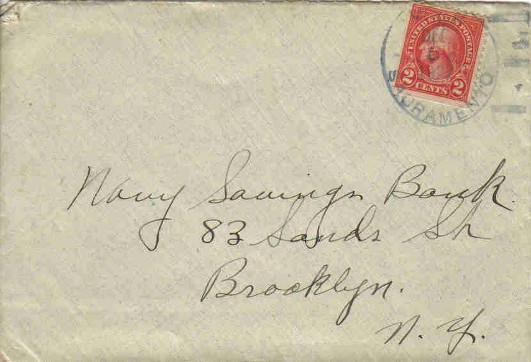 UNITED STATES POSTAGE
2 CENTS 2
SACRAMENTO
Navy Savings Bank.
83 Sands St
Brooklyn.
N. Y.